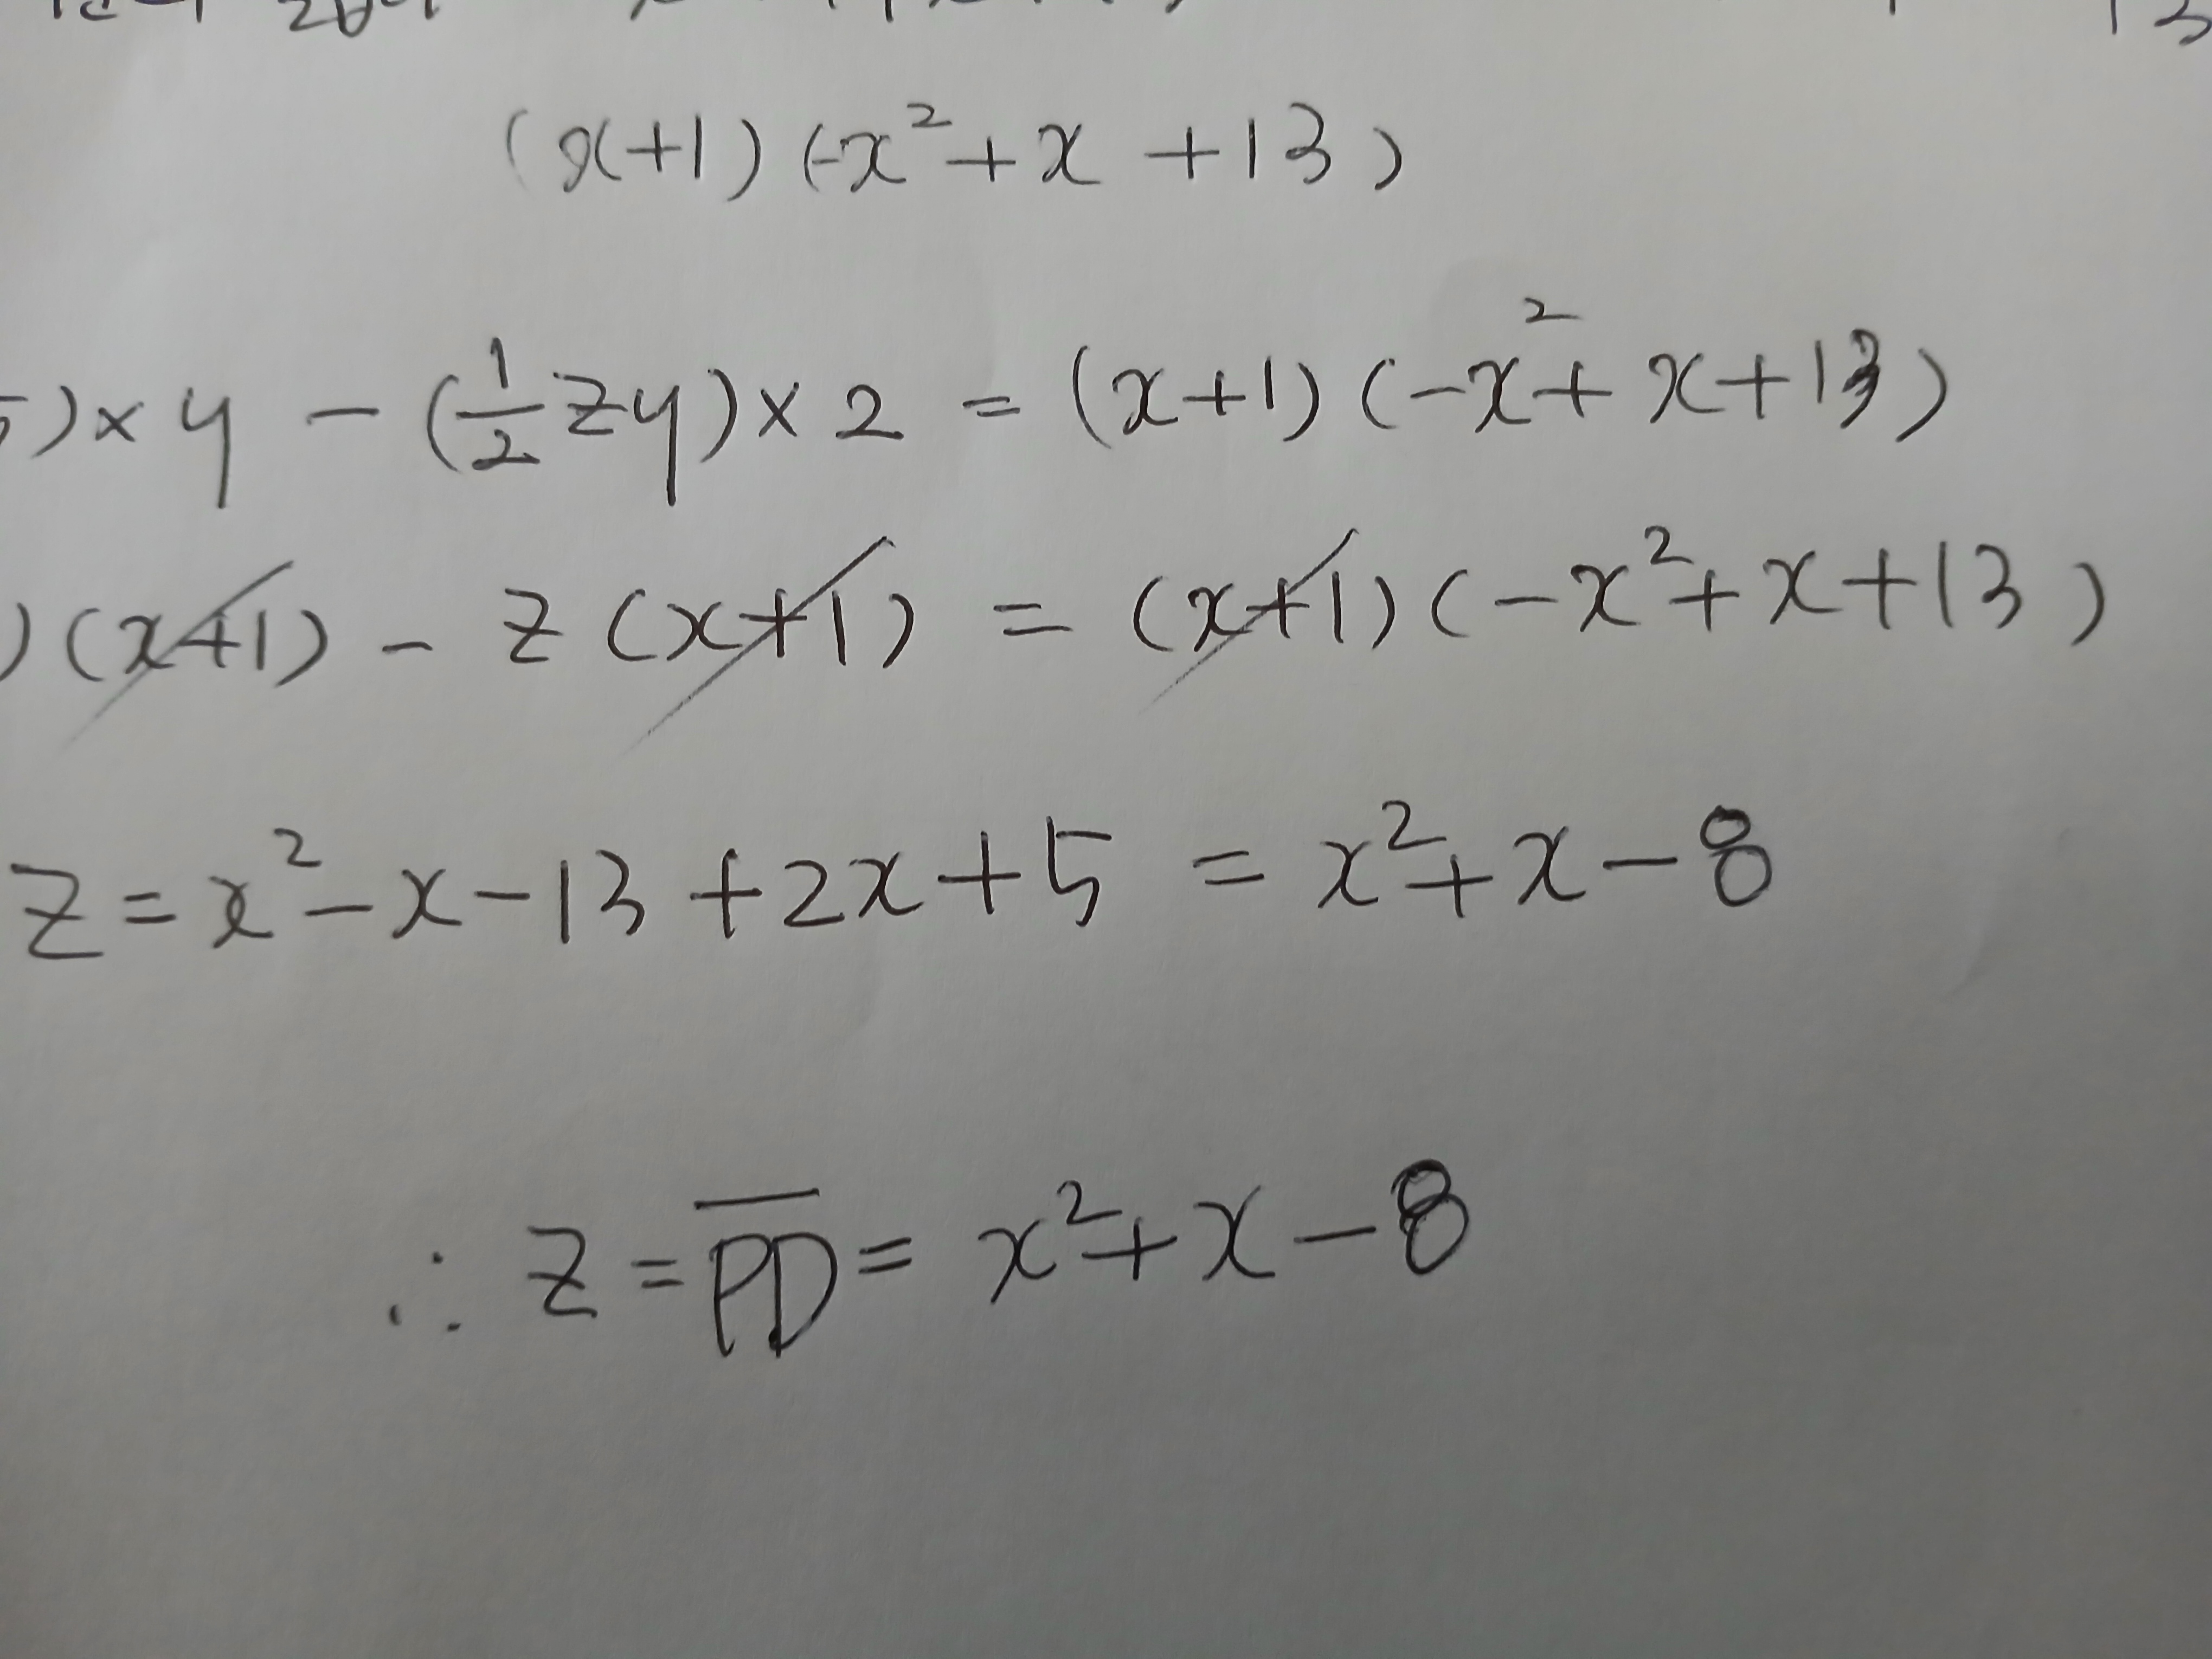 (x+1)(-x²+x+13)
)×y - (½zy)×2 = (x+1)(-x²+x+13)
)(x+1) - z(x+1) = (x+1)(-x²+x+13)
z=x²-x-13+2x+5 = x²+x-8
∴ z=P̅D̅= x²+x-8